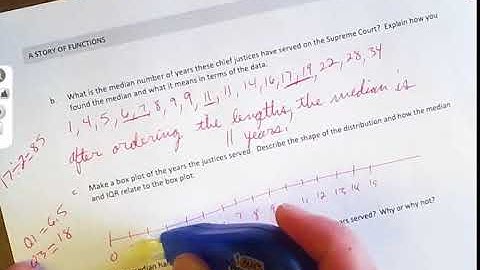 A STORY OF FUNCTIONS
b. What is the median number of years these chief justices have served on the Supreme Court? Explain how you
found the median and what it means in terms of the data.
1, 4, 5, 6, 7, 8, 9, 9, 11, 11, 14, 16, 17, 19, 22, 28, 34
After ordering the lengths, the median is
11 years.
17÷2=8.5
c. Make a box plot of the years the justices served. Describe the shape of the distribution and how the median
and IQR relate to the box plot.
Q1=6.5
Q3=18
0 7 8 9 10 11 12 13 14 15
served? Why or why not?
median